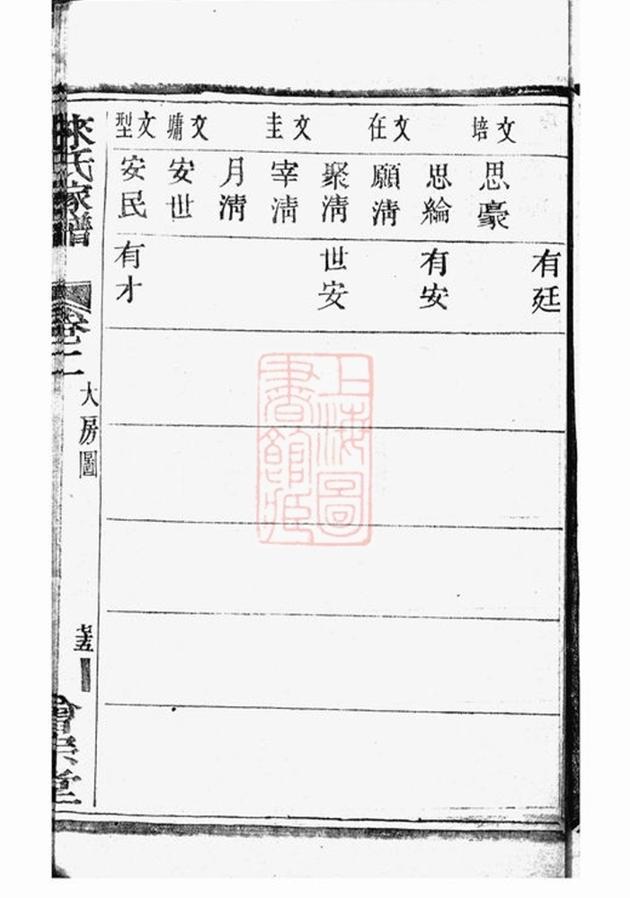 有廷
文培
思豪
思綸
有安
文在
願淸
聚淸
世安
文圭
宰淸
月淸
文墉
安世
文型
安民
有才
氏家譜
卷二
大房圖
會宗堂
上海圖
書館藏